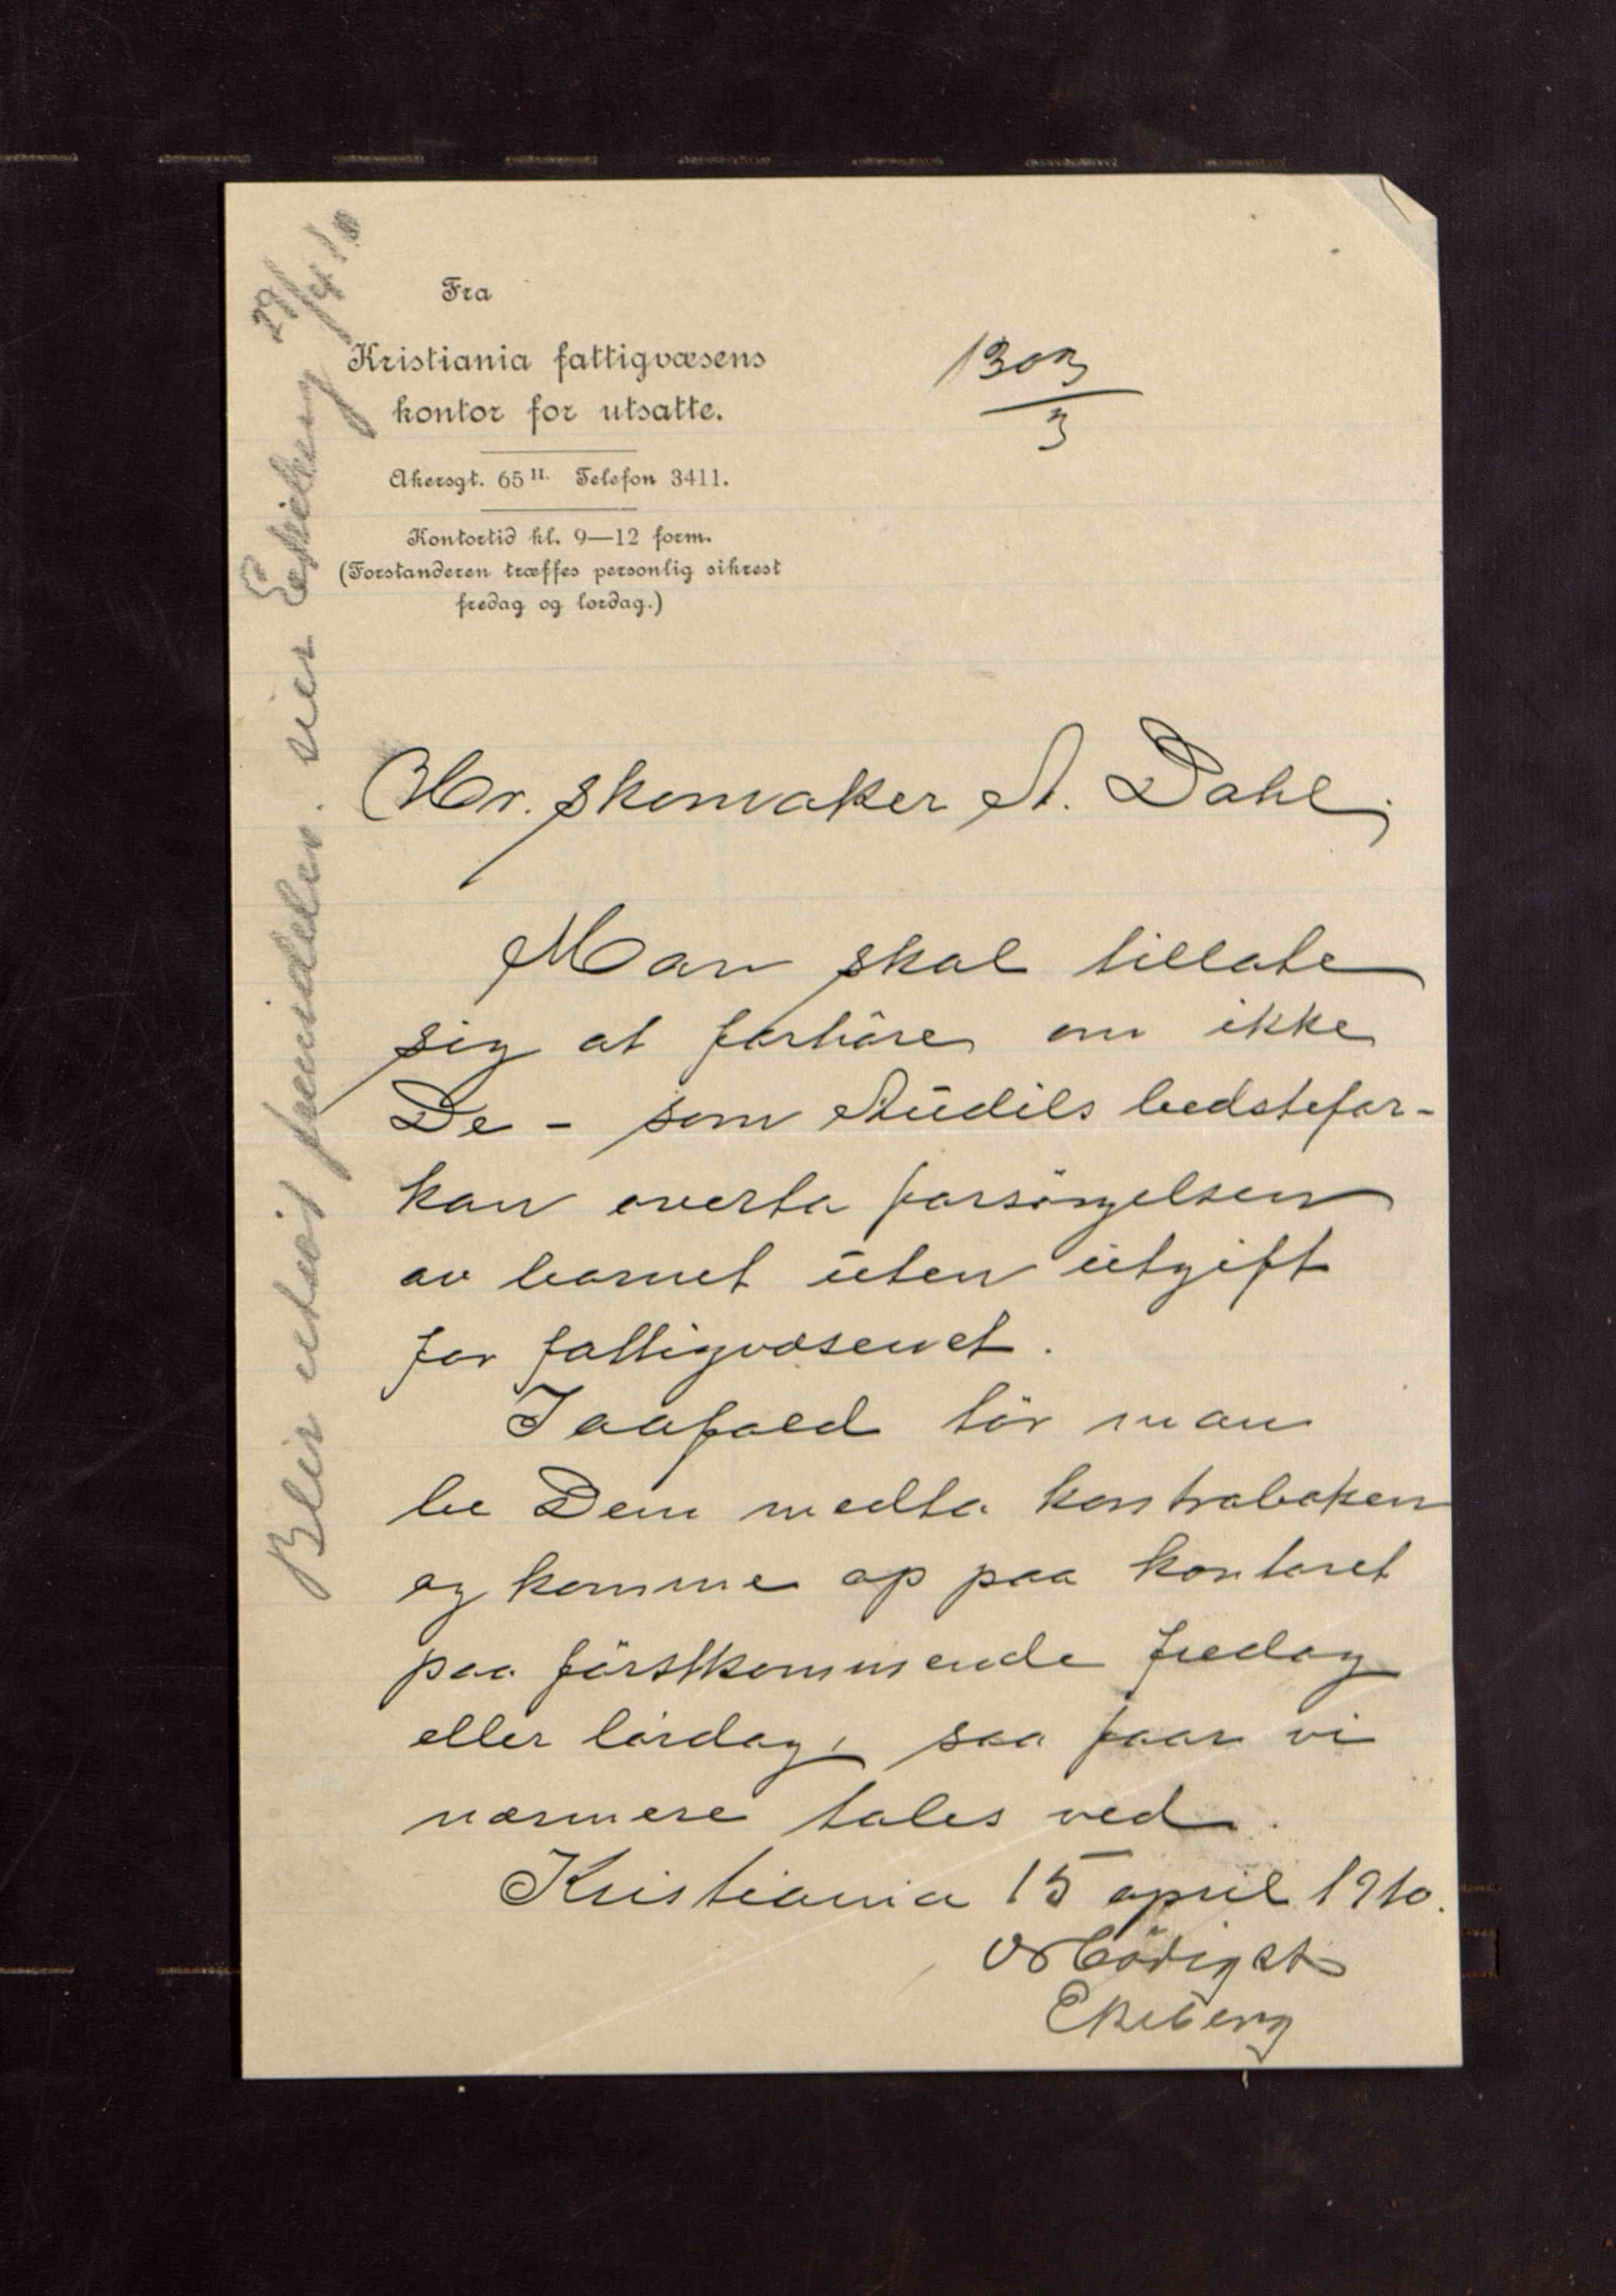 Fra
Kristiania fattigvæsens
kontor for utsatte.
Akersgt. 65 II. Telefon 3411.
Kontortid kl. 9—12 form.
(Forstanderen træffes personlig sikrest
fredag og lørdag.)
1303
3
Hr. skomaker A. Dahl,
Man skal tillate
sig at forhöre om ikke
De - som bedstefar-
kan overta forsörgelsen
av barnet uten utgift
for fattigvæsenet.
I saafald tör man
be Dem medta kontraboken
og komme op paa kontoret
paa förstkommende fredag
eller lördag, saa faar vi
nærmere tales ved.
Kristiania 15 april 1910.
Ærbödigst
Ekeberg
Blir utsat fremdeles. sier Ekeberg 29/4 10